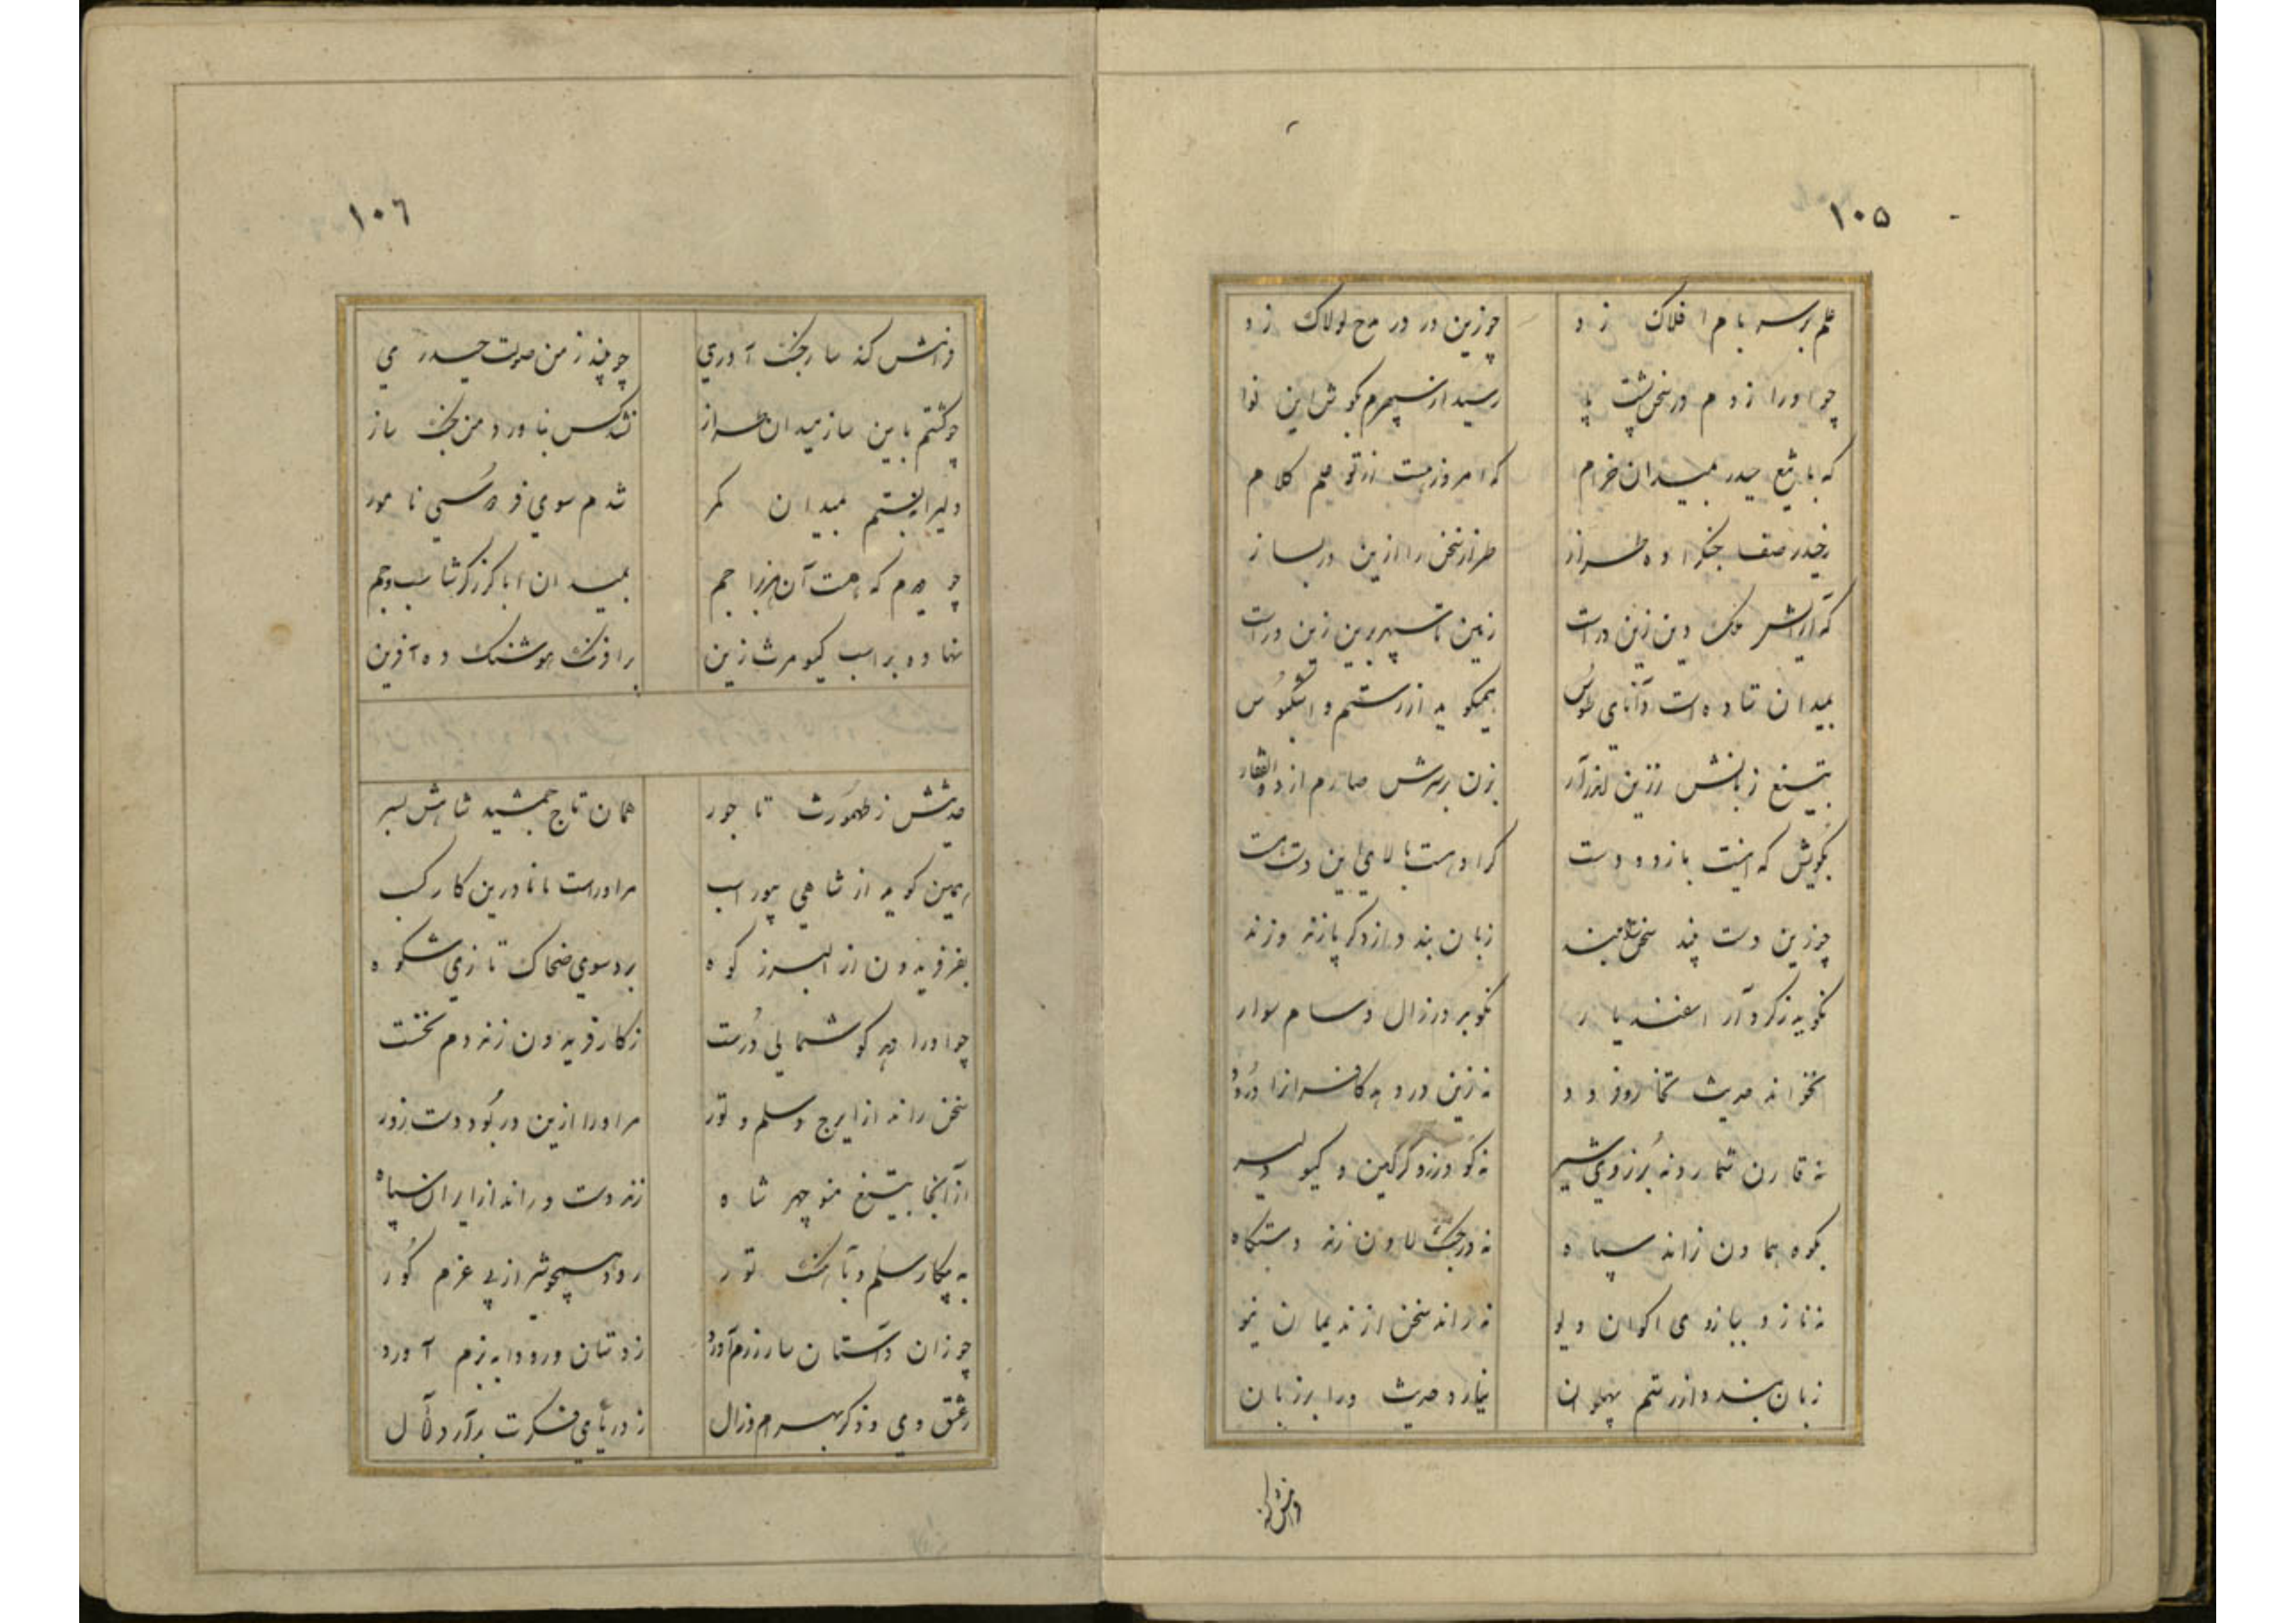 ١٠۵
علم بر سر بام افلاک زد چو زین در در مدح لولاک زد
چو او را زدم در سخن پشت پا رسید از سپهرم بگوش این نوا
که با تیغ حیدر بمیدان خرام که امروز هست از تو علم کلام
زحیدر صف جنگ را ده طراز طراز سخن را ازین در بساز
که آرایش ملک و دین زین در است زمین تا سپهر برین زین در است
بمیدان ستاده است دانای طوس همیگوید از رستم و اشکبوس
بتیغ زبانش ززین اندر آر بزن بر سرش صارم از ذوالفقار
بگویش که اینت بازو و دست کرا دست بالای این دست هست
چو زین دست چند سخن بشنود زبان بندد از دگر پازند و زند
نگوید ز گرد آر اسفندیار نگوید ز زال و سام سوار
نخواند حدیث تخار و فرود نه زین در دهد کافران را درود
نه قارن شمارد نه برزوی شیر نه گودرز و گرگین و گیو دلیر
بکوه هماون نراند سپاه نه در جنگ لاون زند دستگاه
نه نازد ببازوی اکوان دیو نه راند سخن از ندیمان نیو
زبان بندد از رستم پهلوان نیارد حدیث ورا بر زبان
فرامش کند
١٠٦
فرامش کند ساز جنگ آوری چو بیند ز من صولت حیدری
چو گشتم باین ساز میدان طراز نشد کس بناورد من جنگ ساز
دلیرانه بستم بمیدان کمر شدم سوی فردوسی نامور
چو دیدم که هست آن هنر را جم بمیدان ابا گرز گرشاسب و جم
نهاده بر اسب کیومرث زین بر اورنگ هوشنگ ده آفرین
حدیثش ز طهمورث تاجور همان تاج جمشید شاهش بسر
همین گوید از شاهی بیوراسب مرا در است مانا درین کار کسب
بفر فریدون از البرز کوه برد سوی ضحاک تازی شکوه
چو او را دهد گوشمالی درست ز کار فریدون زند دم نخست
سخن راند از ایرج و سلم و تور مرا و را ازین در بود دست زور
از آنجا بتیغ منوچهر شاه زند دست و راند از ایران سپاه
به پیکار سلم و بآهنگ تور رود همچو شیر از پی عزم گور
چو زان داستان ساز رزم آورد ز دستان و رودابه بزم آورد
ز عشق وی و ذکر بهرام و زال ز دریای فکرت برآرد لآل